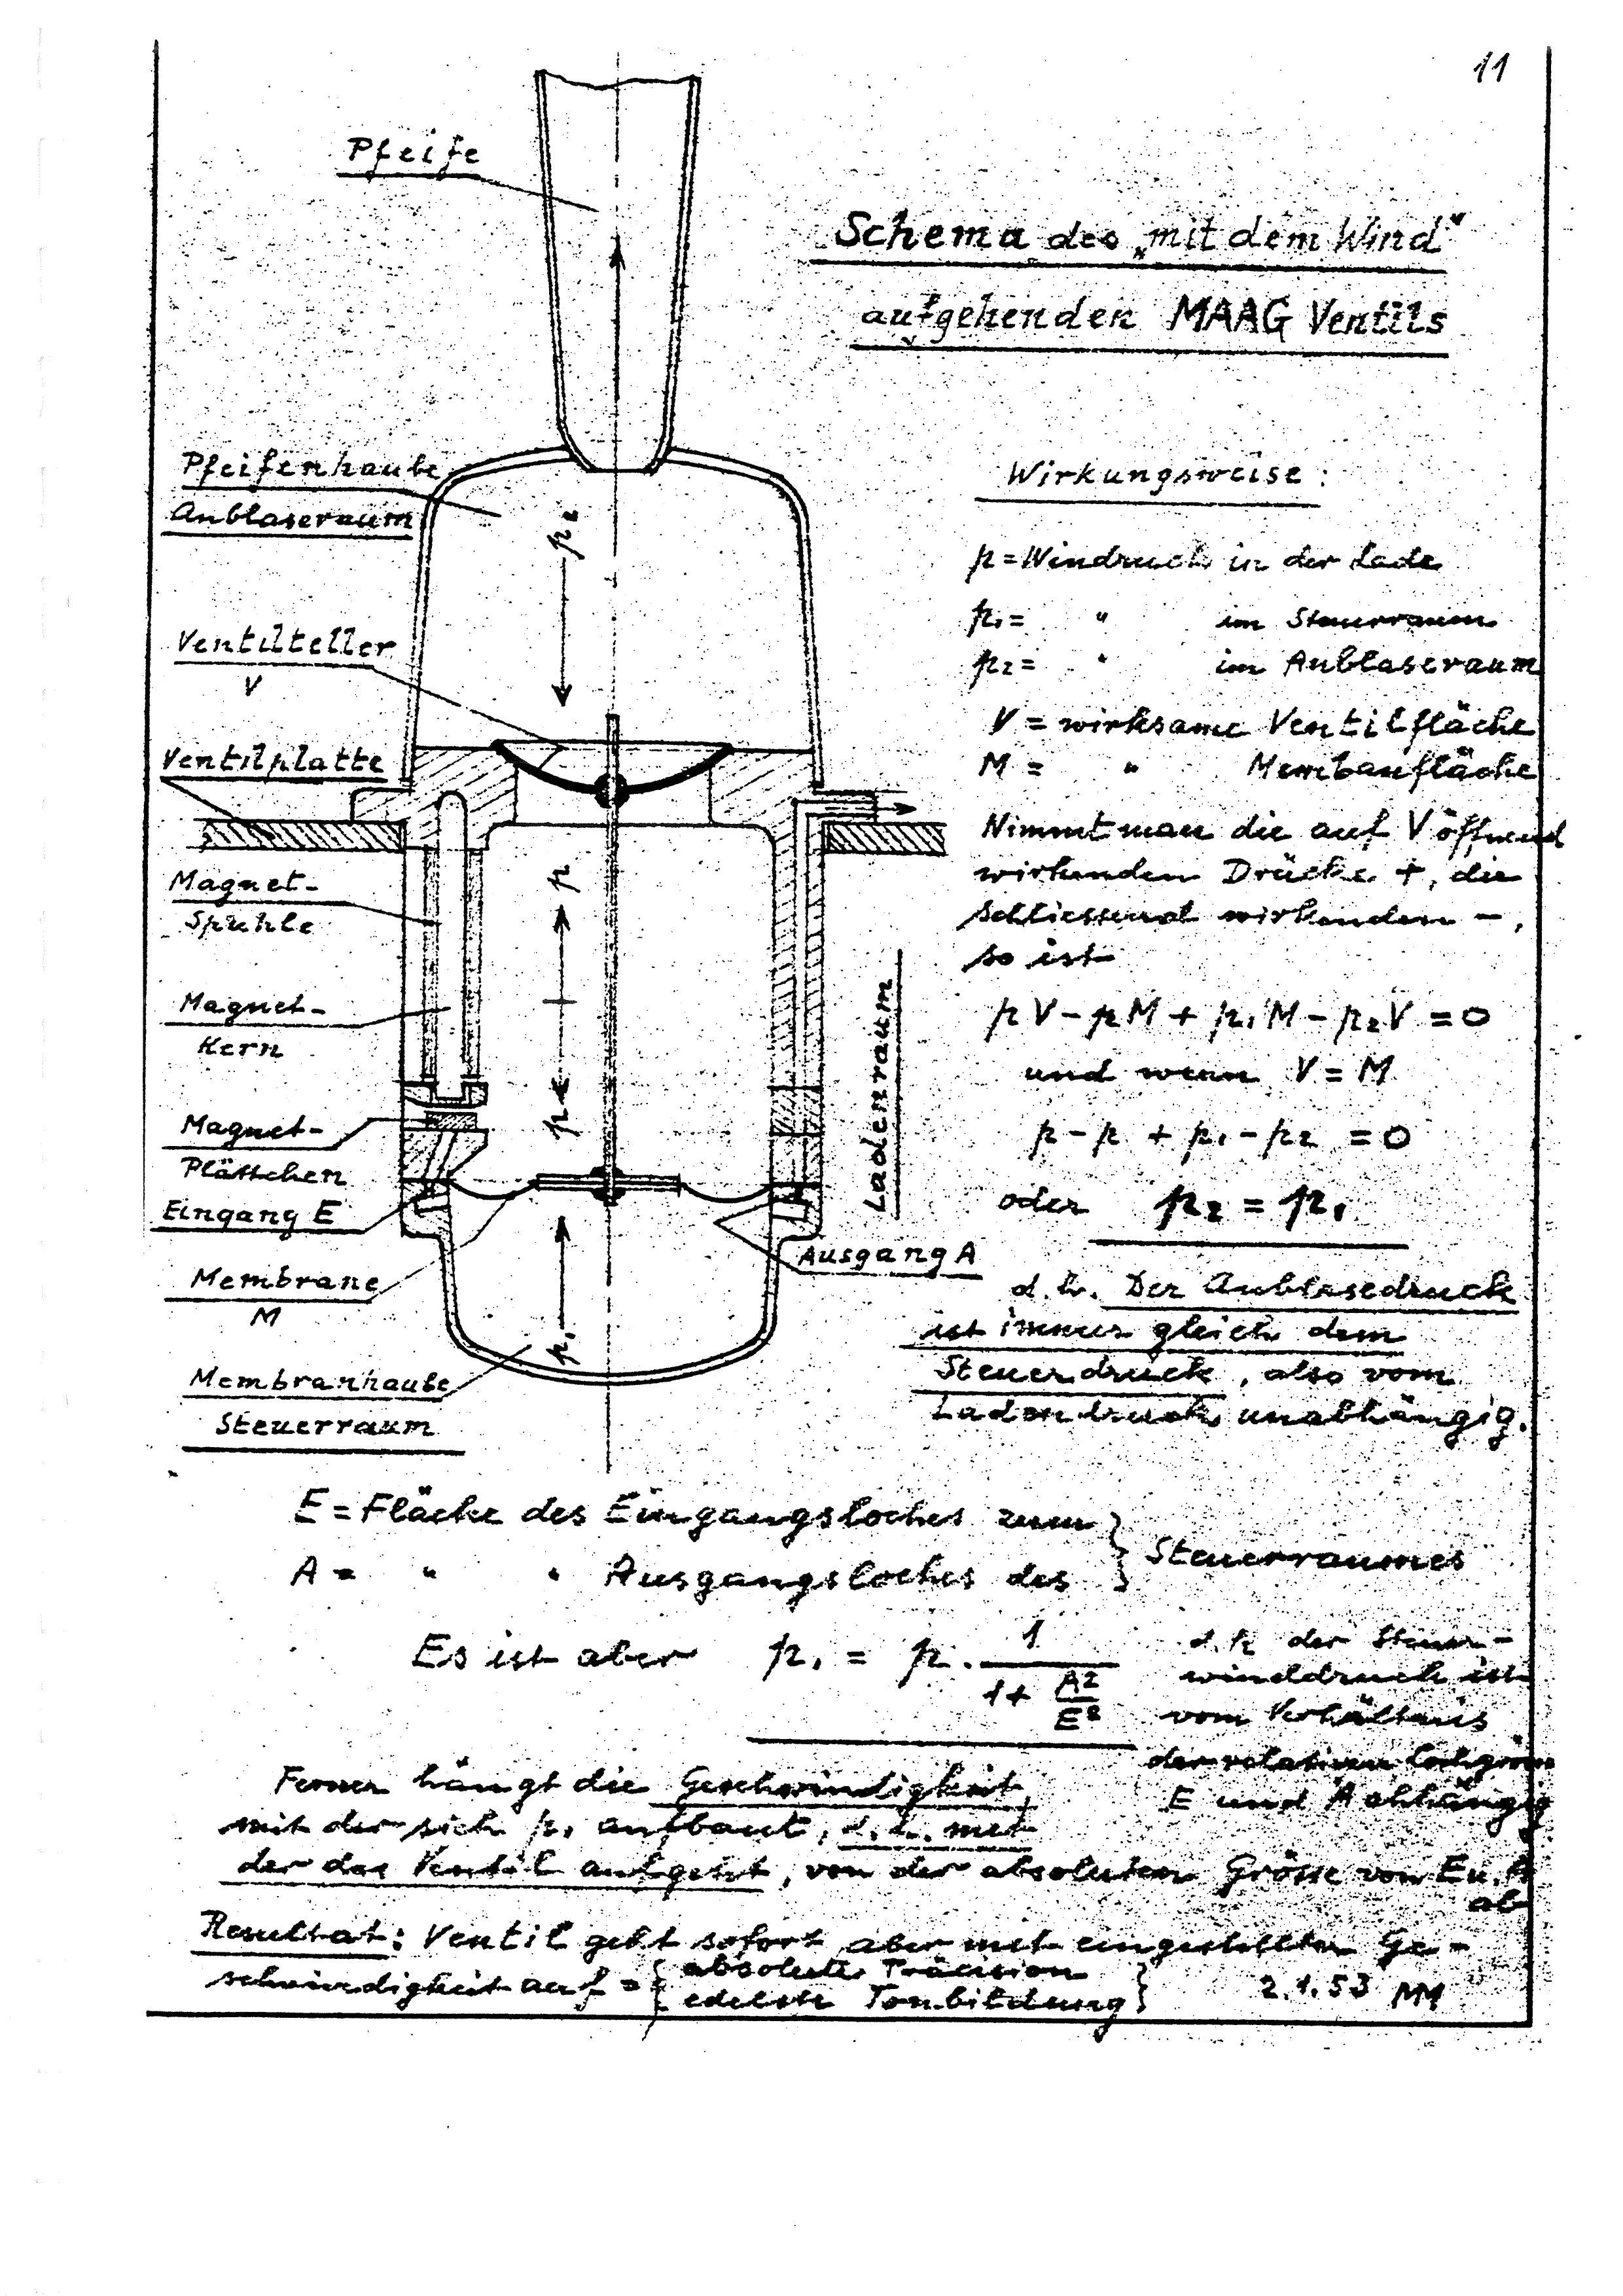 11
Schema des „mit dem Wind"
aufgehenden MAAG Ventils
Pfeife
Pfeifenhaube
Anblaseraum
Ventilteller
V
Ventilplatte
Magnet-
Spuhle
Magnet-
Kern
Magnet-
Plättchen
Eingang E
Membrane
M
Membranhaube
Steuerraum
p₂
p
p
p₁
Ladenraum
Ausgang A
Wirkungsweise:
p = Windruck in der Lade
p₁ = " im Steuerraum
p₂ = " im Anblaseraum
V = wirksame Ventilfläche
M = " Membanfläche
Nimmt man die auf V öffnend
wirkenden Drücke +, die
schliessend wirkenden -,
so ist
pV - pM + p₁M - p₂V = 0
und wenn V = M
p - p + p₁ - p₂ = 0
oder p₂ = p₁
d.h. Der Anblasedruck
ist immer gleich dem
Steuerdruck, also vom
Ladendruck unabhängig.
E = Fläche des Eingangsloches zum
A = " " Ausgangsloches des } Steuerraumes
Es ist aber p₁ = p · 1 / (1 + A²/E²)
d.h. der Steuer-
winddruck ist
vom Verhältnis
der relativen Lochgrösse
E und A abhängig
Ferner hängt die Geschwindigkeit,
mit der sich p₁ aufbaut, d.h. mit
der das Ventil aufgeht, von der absoluten Grösse von E u. A
ab
Resultat: Ventil geht sofort, aber mit eingestellter Ge-
schwindigkeit auf = { absolute Präcision
edelste Tonbildung }
2.1.53 MM